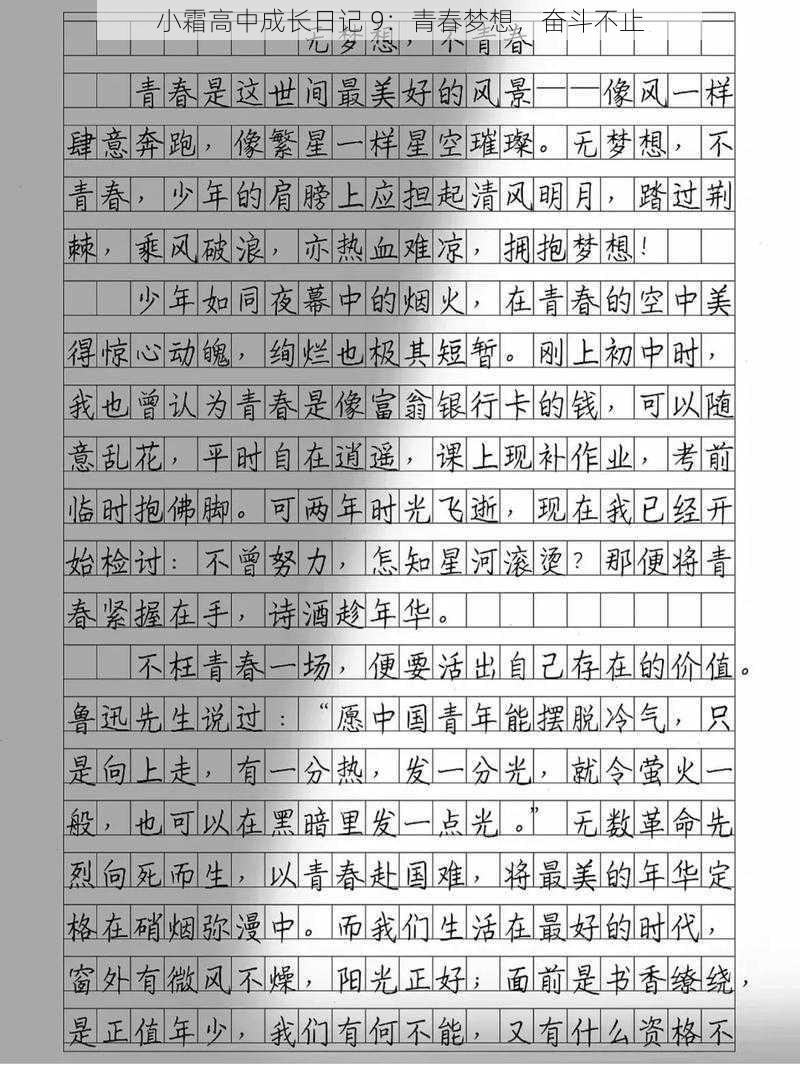 小霜高中成长日记 9：青春梦想，奋斗不止
无梦想，不青春
青春是这世间最美好的风景——像风一样
肆意奔跑，像繁星一样星空璀璨。无梦想，不
青春，少年的肩膀上应担起清风明月，踏过荆
棘，乘风破浪，亦热血难凉，拥抱梦想！
少年如同夜幕中的烟火，在青春的空中美
得惊心动魄，绚烂也极其短暂。刚上初中时，
我也曾认为青春是像富翁银行卡的钱，可以随
意乱花，平时自在逍遥，课上现补作业，考前
临时抱佛脚。可两年时光飞逝，现在我已经开
始检讨：不曾努力，怎知星河滚烫？那便将青
春紧握在手，诗酒趁年华。
不枉青春一场，便要活出自己存在的价值。
鲁迅先生说过：“愿中国青年能摆脱冷气，只
是向上走，有一分热，发一分光，就令萤火一
般，也可以在黑暗里发一点光。”无数革命先
烈向死而生，以青春赴国难，将最美的年华定
格在硝烟弥漫中。而我们生活在最好的时代，
窗外有微风不燥，阳光正好；面前是书香缭绕，
是正值年少，我们有何不能，又有什么资格不